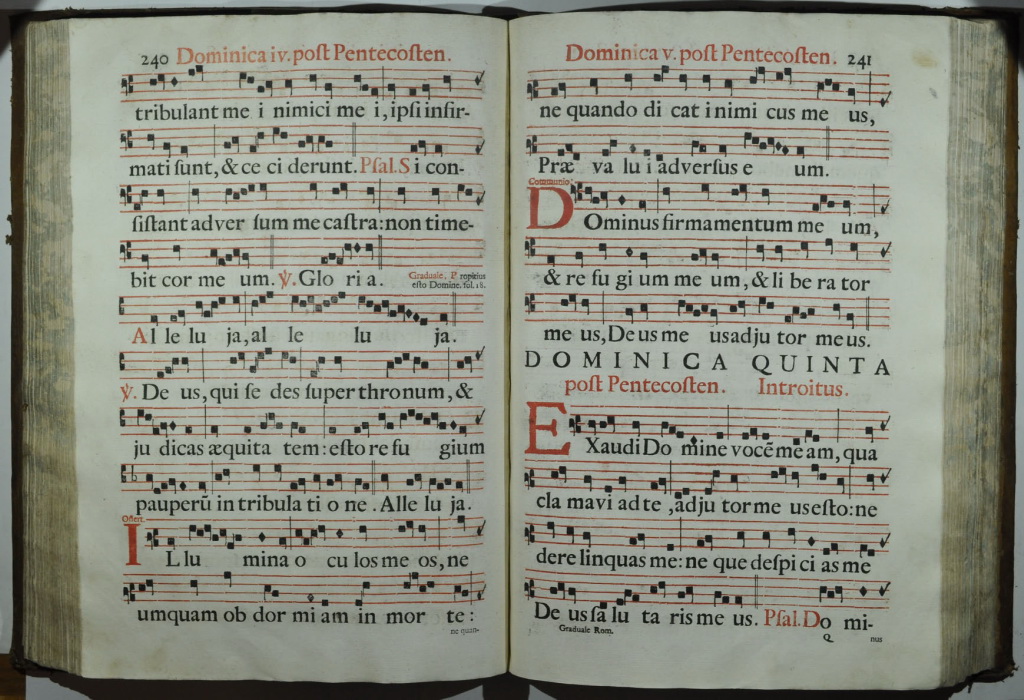 240 Dominica iv. poſt Pentecoſten.
tribulant me i nimici me i, ipſi infir-
mati ſunt, & ce ci derunt. Pſal. S i con-
ſiſtant adver ſum me caſtra: non time-
bit cor me um. ℣. Glo ri a. Graduale, P ropitius
eſto Domine. fol.
Al le lu ja, al le lu ja.
℣. De us, qui ſe des ſuper thronum, &
ju dicas æquita tem: eſto re fu gium
pauperū in tribula ti o ne. Alle lu ja.
Offert.
IL lu mina o cu los me os, ne
umquam ob dor mi am in mor te:
ne quan-
Dominica v. poſt Pentecoſten. 241
ne quando di cat inimi cus me us,
Præ va lu i adverſus e um.
Communio.
DOminus firmamentum me um,
& re fu gi um me um, & li be ra tor
me us, De us me us adju tor me us.
DOMINICA QUINTA
poſt Pentecoſten. Introitus.
EXaudi Do mine vocē me am, qua
cla mavi ad te, adju tor me us eſto: ne
dere linquas me: ne que deſpi ci as me
De us ſa lu ta ris me us. Pſal. Do mi-
Graduale Rom. Q nus